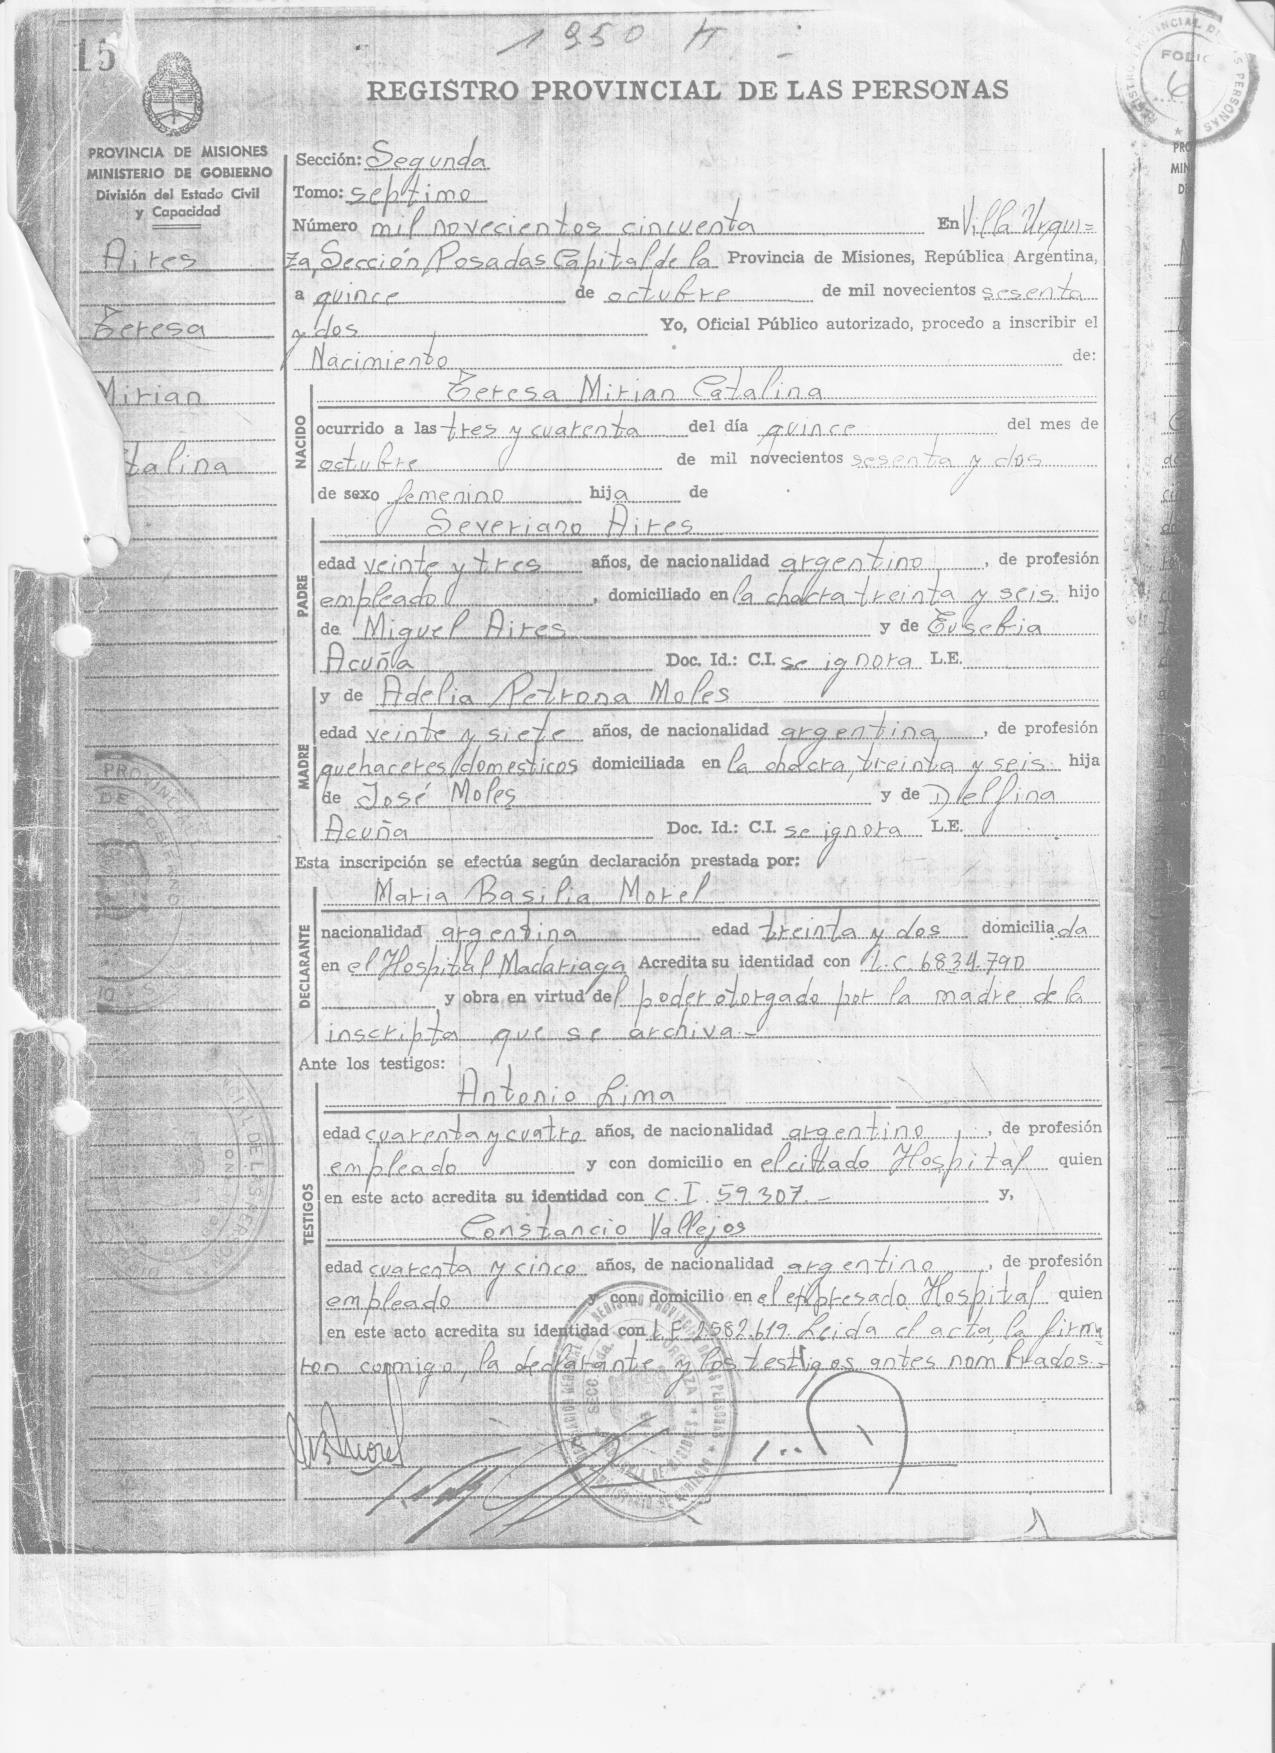 1950 H
15
FOLIO
6
REGISTRO PROVINCIAL DE LAS PERSONAS
PROVINCIA DE MISIONES
MINISTERIO DE GOBIERNO
División del Estado Civil
y Capacidad
Aires
Teresa
Mirian
talina
Sección: Segunda
Tomo: septimo
Número mil novecientos cincuenta En Villa Urqui=
za, Sección Posadas Capital de la Provincia de Misiones, República Argentina,
a quince de octubre de mil novecientos sesenta
y dos Yo, Oficial Público autorizado, procedo a inscribir el
Nacimiento de:
NACIDO
Teresa Mirian Catalina
ocurrido a las tres y cuarenta del día quince del mes de
octubre de mil novecientos sesenta y dos
de sexo femenino hija de
PADRE
Severiano Aires
edad veinte y tres años, de nacionalidad argentino, de profesión
empleado, domiciliado en la chacra treinta y seis hijo
de Miguel Aires y de Eusebia
Acuña Doc. Id.: C.I. se ignora L.E.
MADRE
y de Adelia Petrona Moles
edad veinte y siete años, de nacionalidad argentina, de profesión
quehaceres domesticos domiciliada en la chacra, treinta y seis hija
de José Moles y de Delfina
Acuña Doc. Id.: C.I. se ignora L.E.
Esta inscripción se efectúa según declaración prestada por:
DECLARANTE
Maria Basilia Morel
nacionalidad argentina edad treinta y dos domiciliada
en el Hospital Madariaga Acredita su identidad con L.C. 6.834.790
y obra en virtud del poder otorgado por la madre de la
inscripta que se archiva.-
Ante los testigos:
TESTIGOS
Antonio Lima
edad cuarenta y cuatro años, de nacionalidad argentino, de profesión
empleado y con domicilio en el citado Hospital quien
en este acto acredita su identidad con C.I. 59.307.- y,
Constancio Vallejos
edad cuarenta y cinco años, de nacionalidad argentino, de profesión
empleado y con domicilio en el expresado Hospital quien
en este acto acredita su identidad con L.E 2582.619. Leida el acta, la firma
ron conmigo, la declarante y los testigos antes nombrados.-